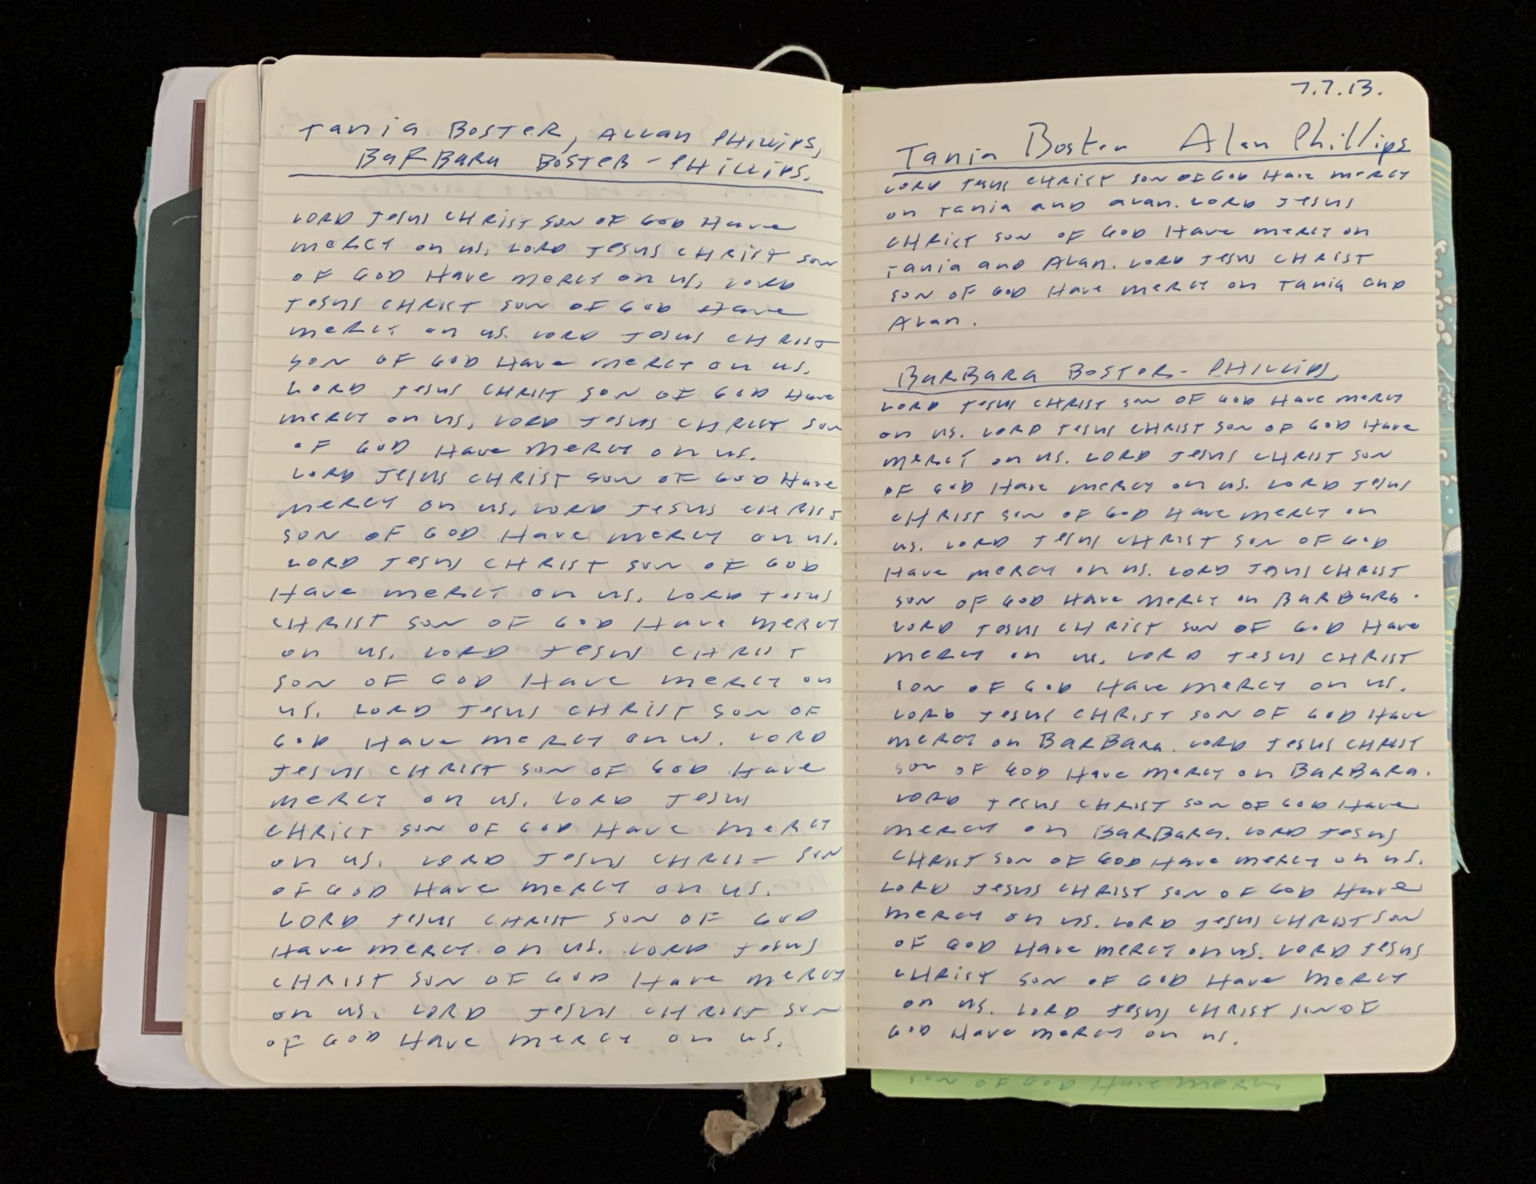 Tania BOSTER, ALLAN PHILLIPS,
BARBARA BOSTER-PHILLIPS.
LORD JESUS CHRIST SON OF GOD Have
mercy on us, LORD JESUS CHRIST SON
OF GOD Have mercy on us, LORD
JESUS CHRIST SON OF GOD Have
mercy on us. LORD JESUS CHRIST
SON OF GOD Have mercy on us.
LORD JESUS CHRIST SON OF GOD Have
mercy on us, LORD JESUS CHRIST SON
OF GOD Have mercy on us.
LORD JESUS CHRIST SON OF GOD Have
mercy on us, LORD JESUS CHRIST
SON OF GOD Have mercy on us.
LORD JESUS CHRIST SON OF GOD
Have mercy on us, LORD JESUS
CHRIST SON OF GOD Have mercy
on us. LORD JESUS CHRIST
SON OF GOD Have mercy on
us. LORD JESUS CHRIST SON OF
GOD Have mercy on us. LORD
JESUS CHRIST SON OF GOD Have
mercy on us, LORD JESUS
CHRIST SON OF GOD Have mercy
on us. LORD JESUS CHRIST SON
OF GOD Have mercy on us.
LORD JESUS CHRIST SON OF GOD
Have mercy on us. LORD JESUS
CHRIST SON OF GOD Have mercy
on us. LORD JESUS CHRIST SON
OF GOD Have mercy on us.
7.7.13.
Tania Boster Alan Phillips
LORD JESUS CHRIST SON OF GOD Have mercy
on Tania and Alan. LORD JESUS
CHRIST SON OF GOD Have mercy on
Tania and Alan. LORD JESUS CHRIST
SON OF GOD Have mercy on Tania and
Alan.
BARBARA BOSTER-PHILLIPS,
LORD JESUS CHRIST SON OF GOD Have mercy
on us. LORD JESUS CHRIST SON OF GOD Have
mercy on us. LORD JESUS CHRIST SON
OF GOD Have mercy on us. LORD JESUS
CHRIST SON OF GOD Have mercy on
us. LORD JESUS CHRIST SON OF GOD
Have mercy on us. LORD JESUS CHRIST
SON OF GOD Have mercy on BARBARA.
LORD JESUS CHRIST SON OF GOD Have
mercy on us, LORD JESUS CHRIST
SON OF GOD Have mercy on us.
LORD JESUS CHRIST SON OF GOD Have
mercy on BARBARA. LORD JESUS CHRIST
SON OF GOD Have mercy on BARBARA.
LORD JESUS CHRIST SON OF GOD Have
mercy on BARBARA. LORD JESUS
CHRIST SON OF GOD Have mercy on us.
LORD JESUS CHRIST SON OF GOD Have
mercy on us. LORD JESUS CHRIST SON
OF GOD Have mercy on us. LORD JESUS
CHRIST SON OF GOD Have mercy
on us. LORD JESUS CHRIST SON OF
GOD Have mercy on us.
SON OF GOD Have mercy